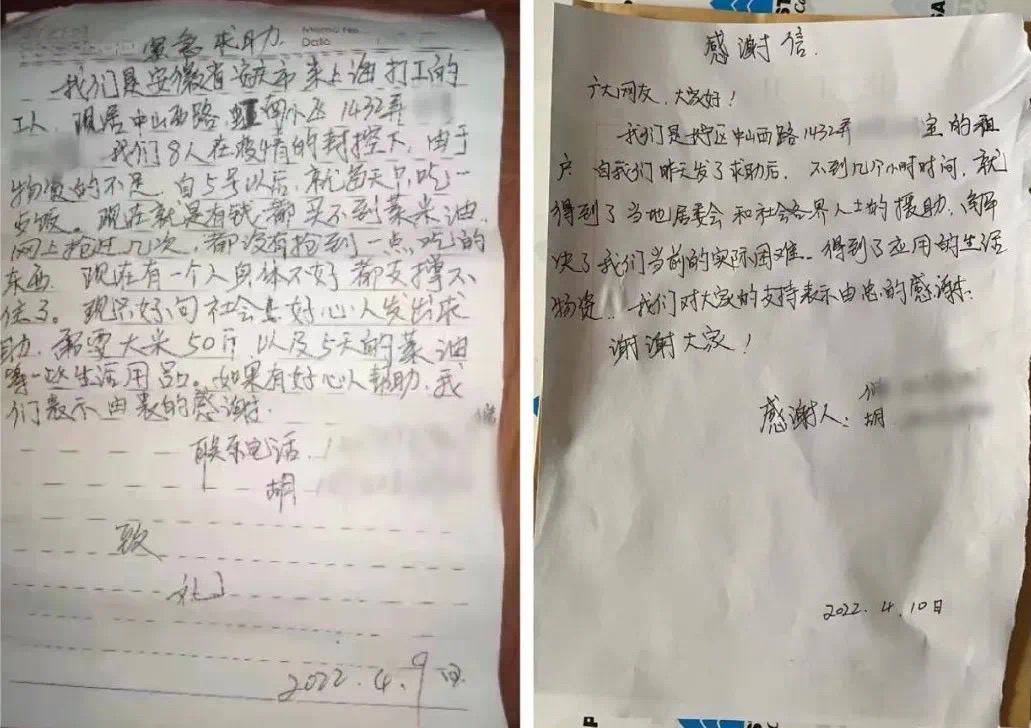 Memo No.
Date
紧急求助
我们是安徽省安庆市来上海打工的
工人,现居中山西路 南小区1432弄
我们8人在疫情的封控下,由于
物资的不足,自5号以后,就每天只吃一
顿饭。现在就是有钱都买不到菜米油,
网上抢过几次,都没有抢到一点吃的
东西,现在有一个人身体不好都支撑不
住了。现只好向社会上好心人发出求
助,需要大米50斤,以及5天的菜油
等一些生活用品。如果有好心人帮助,我
们表示由衷的感谢。
联系电话
胡
致
礼
2022.4.9日
感谢信.
广大网友,大家好!
我们是长宁区中山西路1432弄 室的租
户,自我们昨天发了求助后,不到几个小时时间,就
得到了当地居委会和社会各界人士的援助,解
决了我们当前的实际困难。得到了应用的生活
物资,我们对大家的支持表示由忠的感谢.
谢谢大家!
感谢人:
胡
2022.4.10日